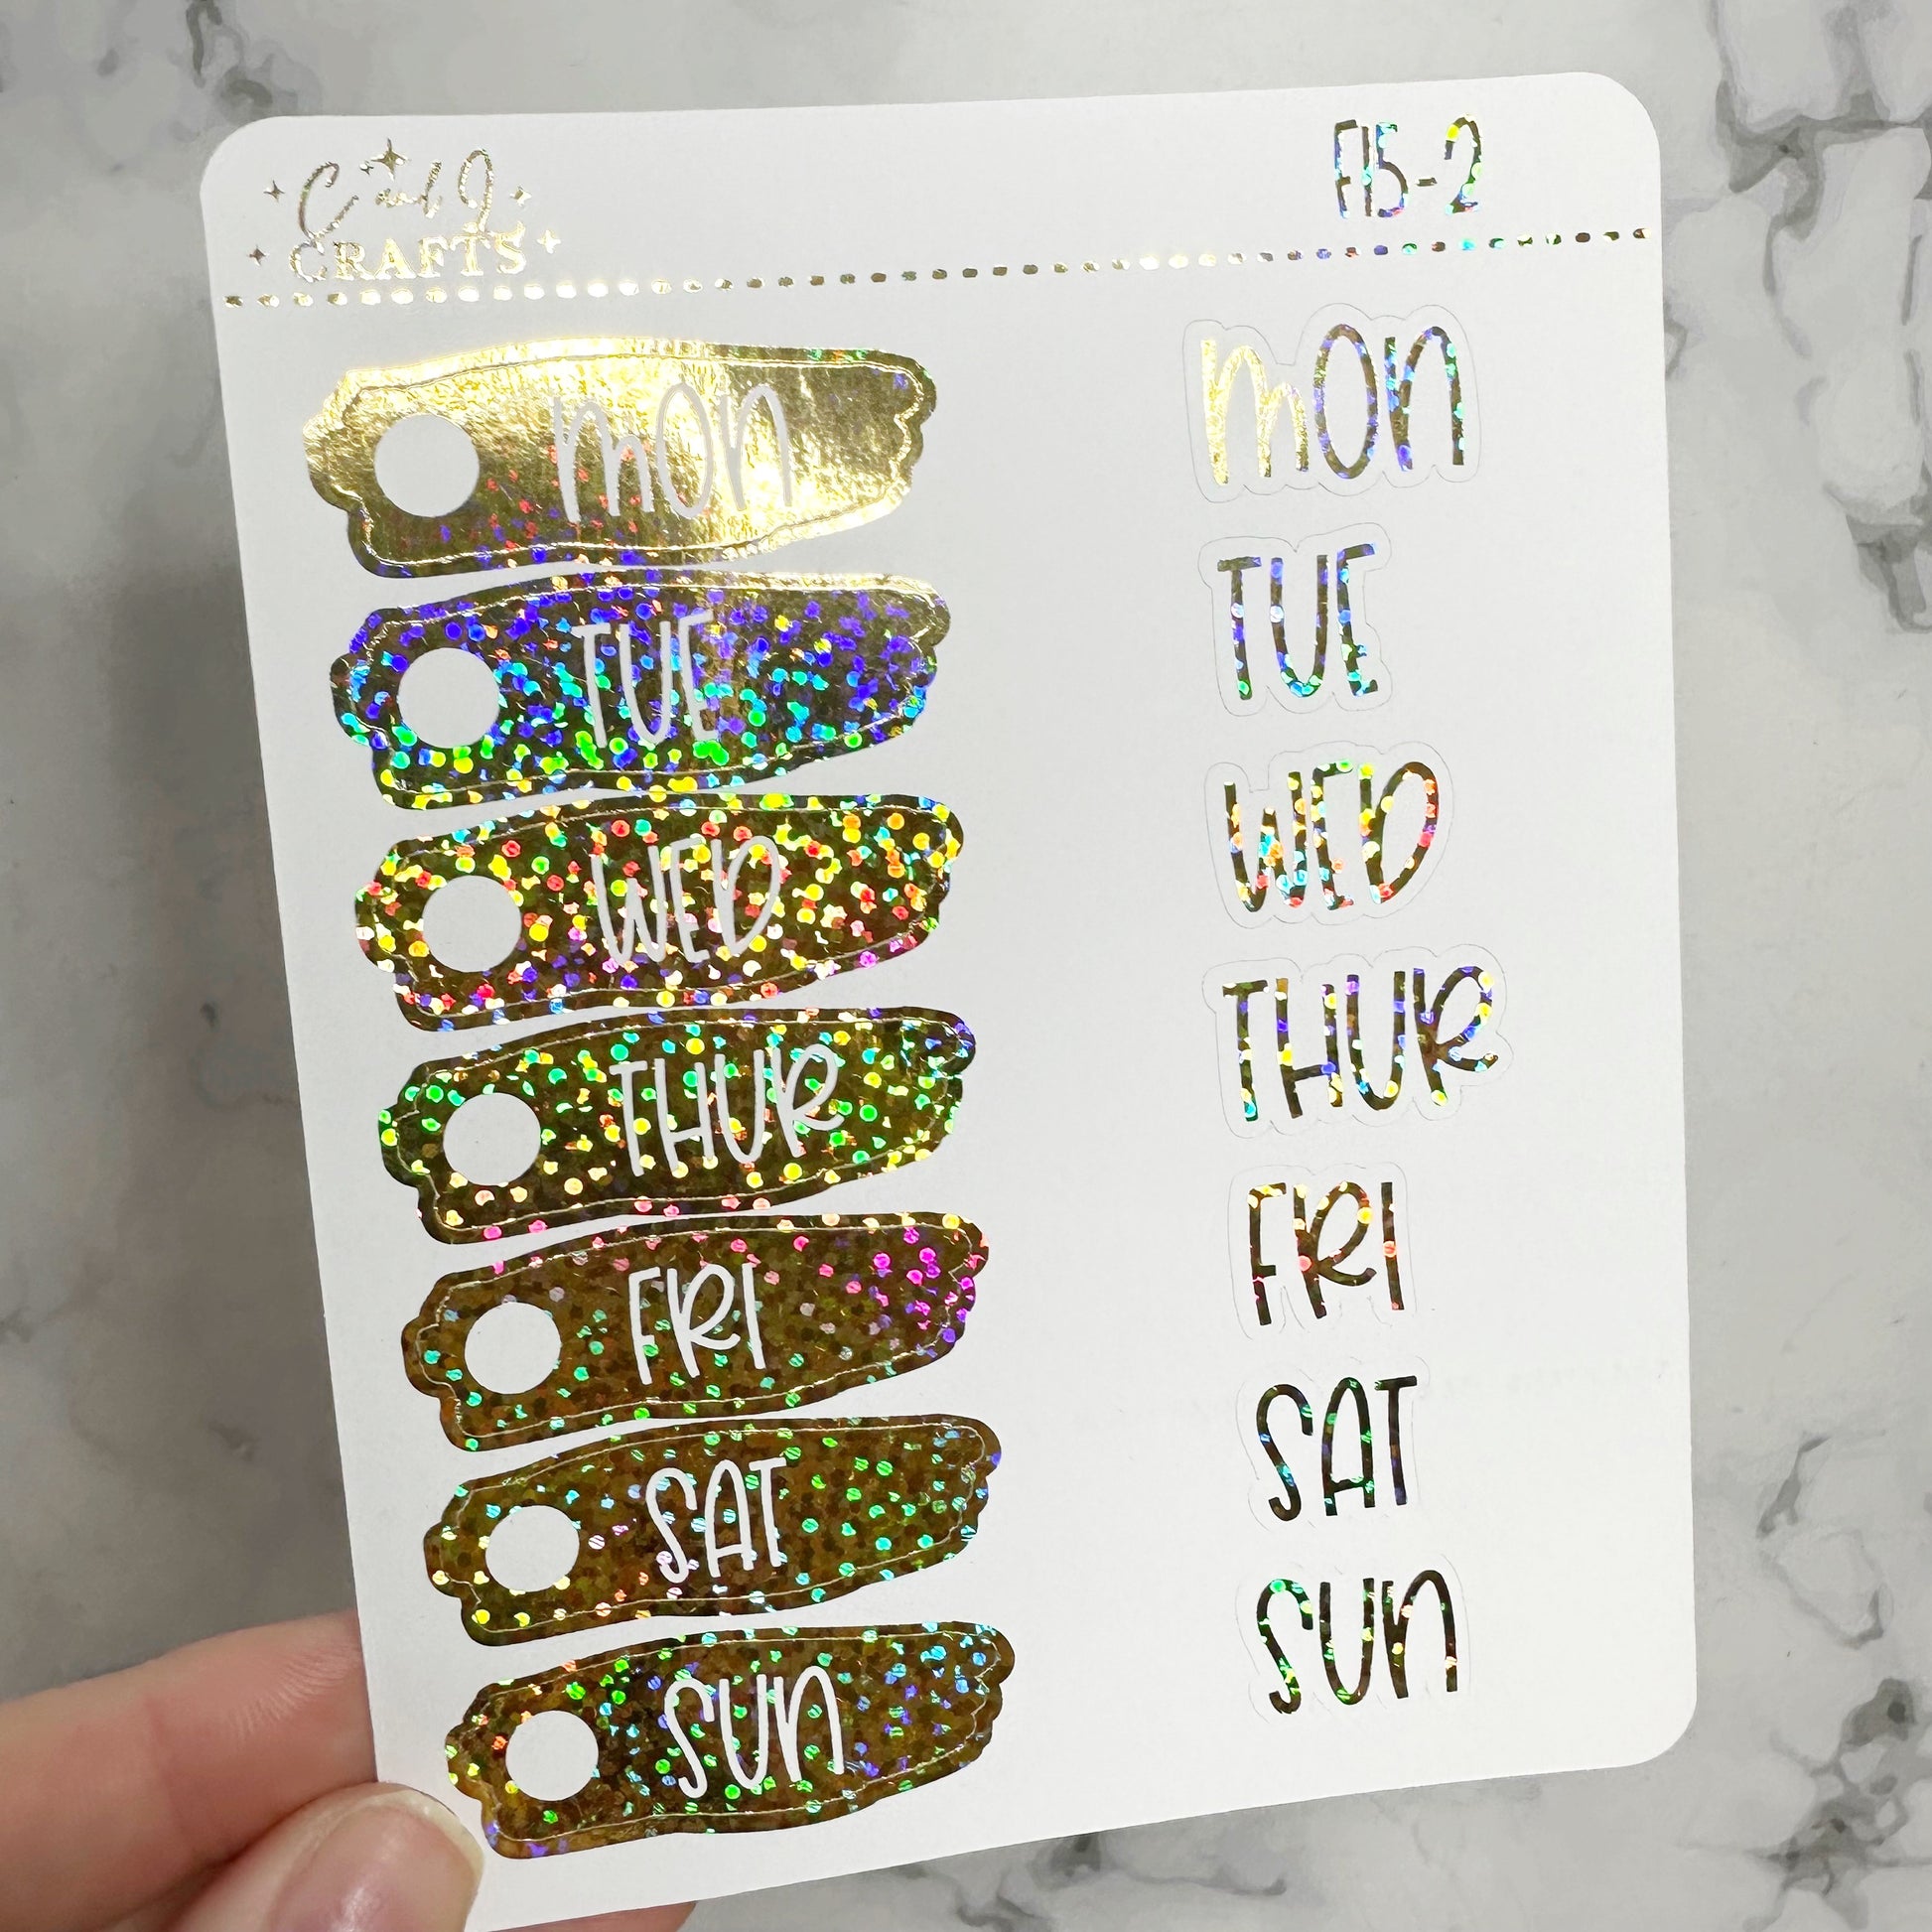 C and J
CRAFTS
F15-2
mON
mON
TUE
TUE
WED
WED
THUR
THUR
FRI
FRI
SAT
SAT
SUN
SUN